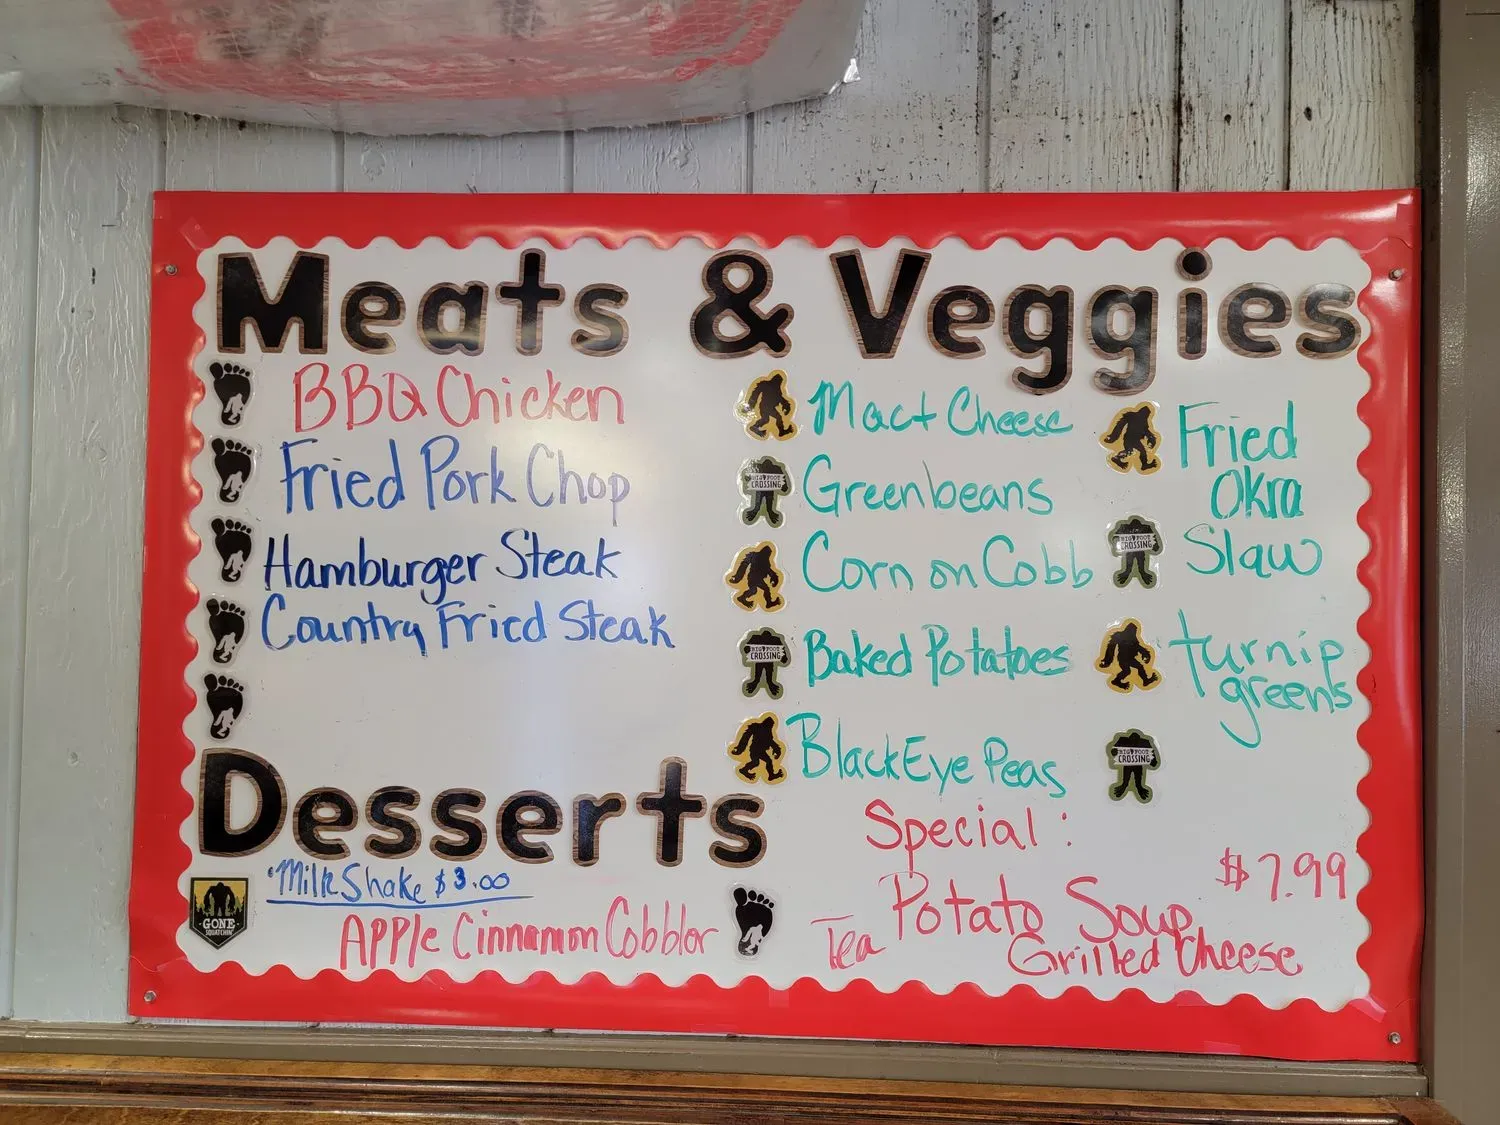 Meats & Veggies
BBQ Chicken
Fried Pork Chop
Hamburger Steak
Country Fried Steak
Mac + Cheese
Greenbeans
Corn on Cobb
Baked Potatoes
BlackEye Peas
Fried
Okra
Slaw
turnip
greens
BIGFOOT
CROSSING
BIGFOOT
CROSSING
BIGFOOT
CROSSING
BIGFOOT
CROSSING
Desserts
Milk Shake $3.00
Apple Cinnamon Cobbler
GONE
SQUATCHIN'
Special :
$7.99
Potato Soup
Grilled Cheese
Tea